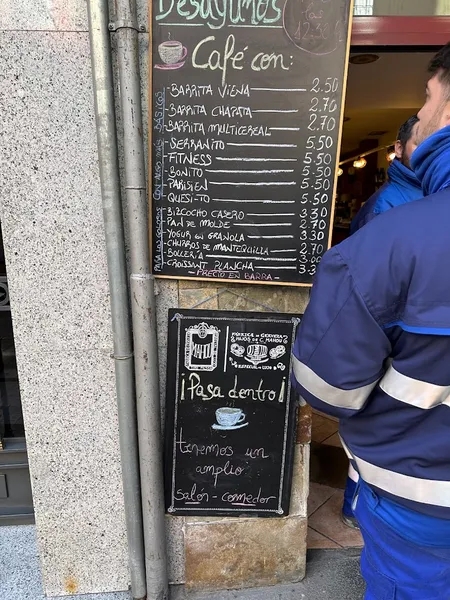 Desayunos
12:30
Café con:
BÁSICOS
-BARRITA VIENA 2.50
-BARRITA CHAPATA 2.70
-BARRITA MULTICEREAL 2.70
CON ALGO MÁS
-SERRANITO 5.50
-FITNESS 5.50
-BONITO 5.50
-PARISIEN 5.50
-QUESI-TO 5.50
PARA LOS GOLOSOS
-BIZCOCHO CASERO 3.30
-PAN DE MOLDE 2.70
-YOGUR CON GRANOLA 3.30
-CHURROS DE MANTEQUILLA 2.70
-BOLLERÍA 3.00
-CROISSANT PLANCHA
-PRECIO EN BARRA-
MAHOU
¡Pasa dentro!
tenemos un
amplio
salón - comedor